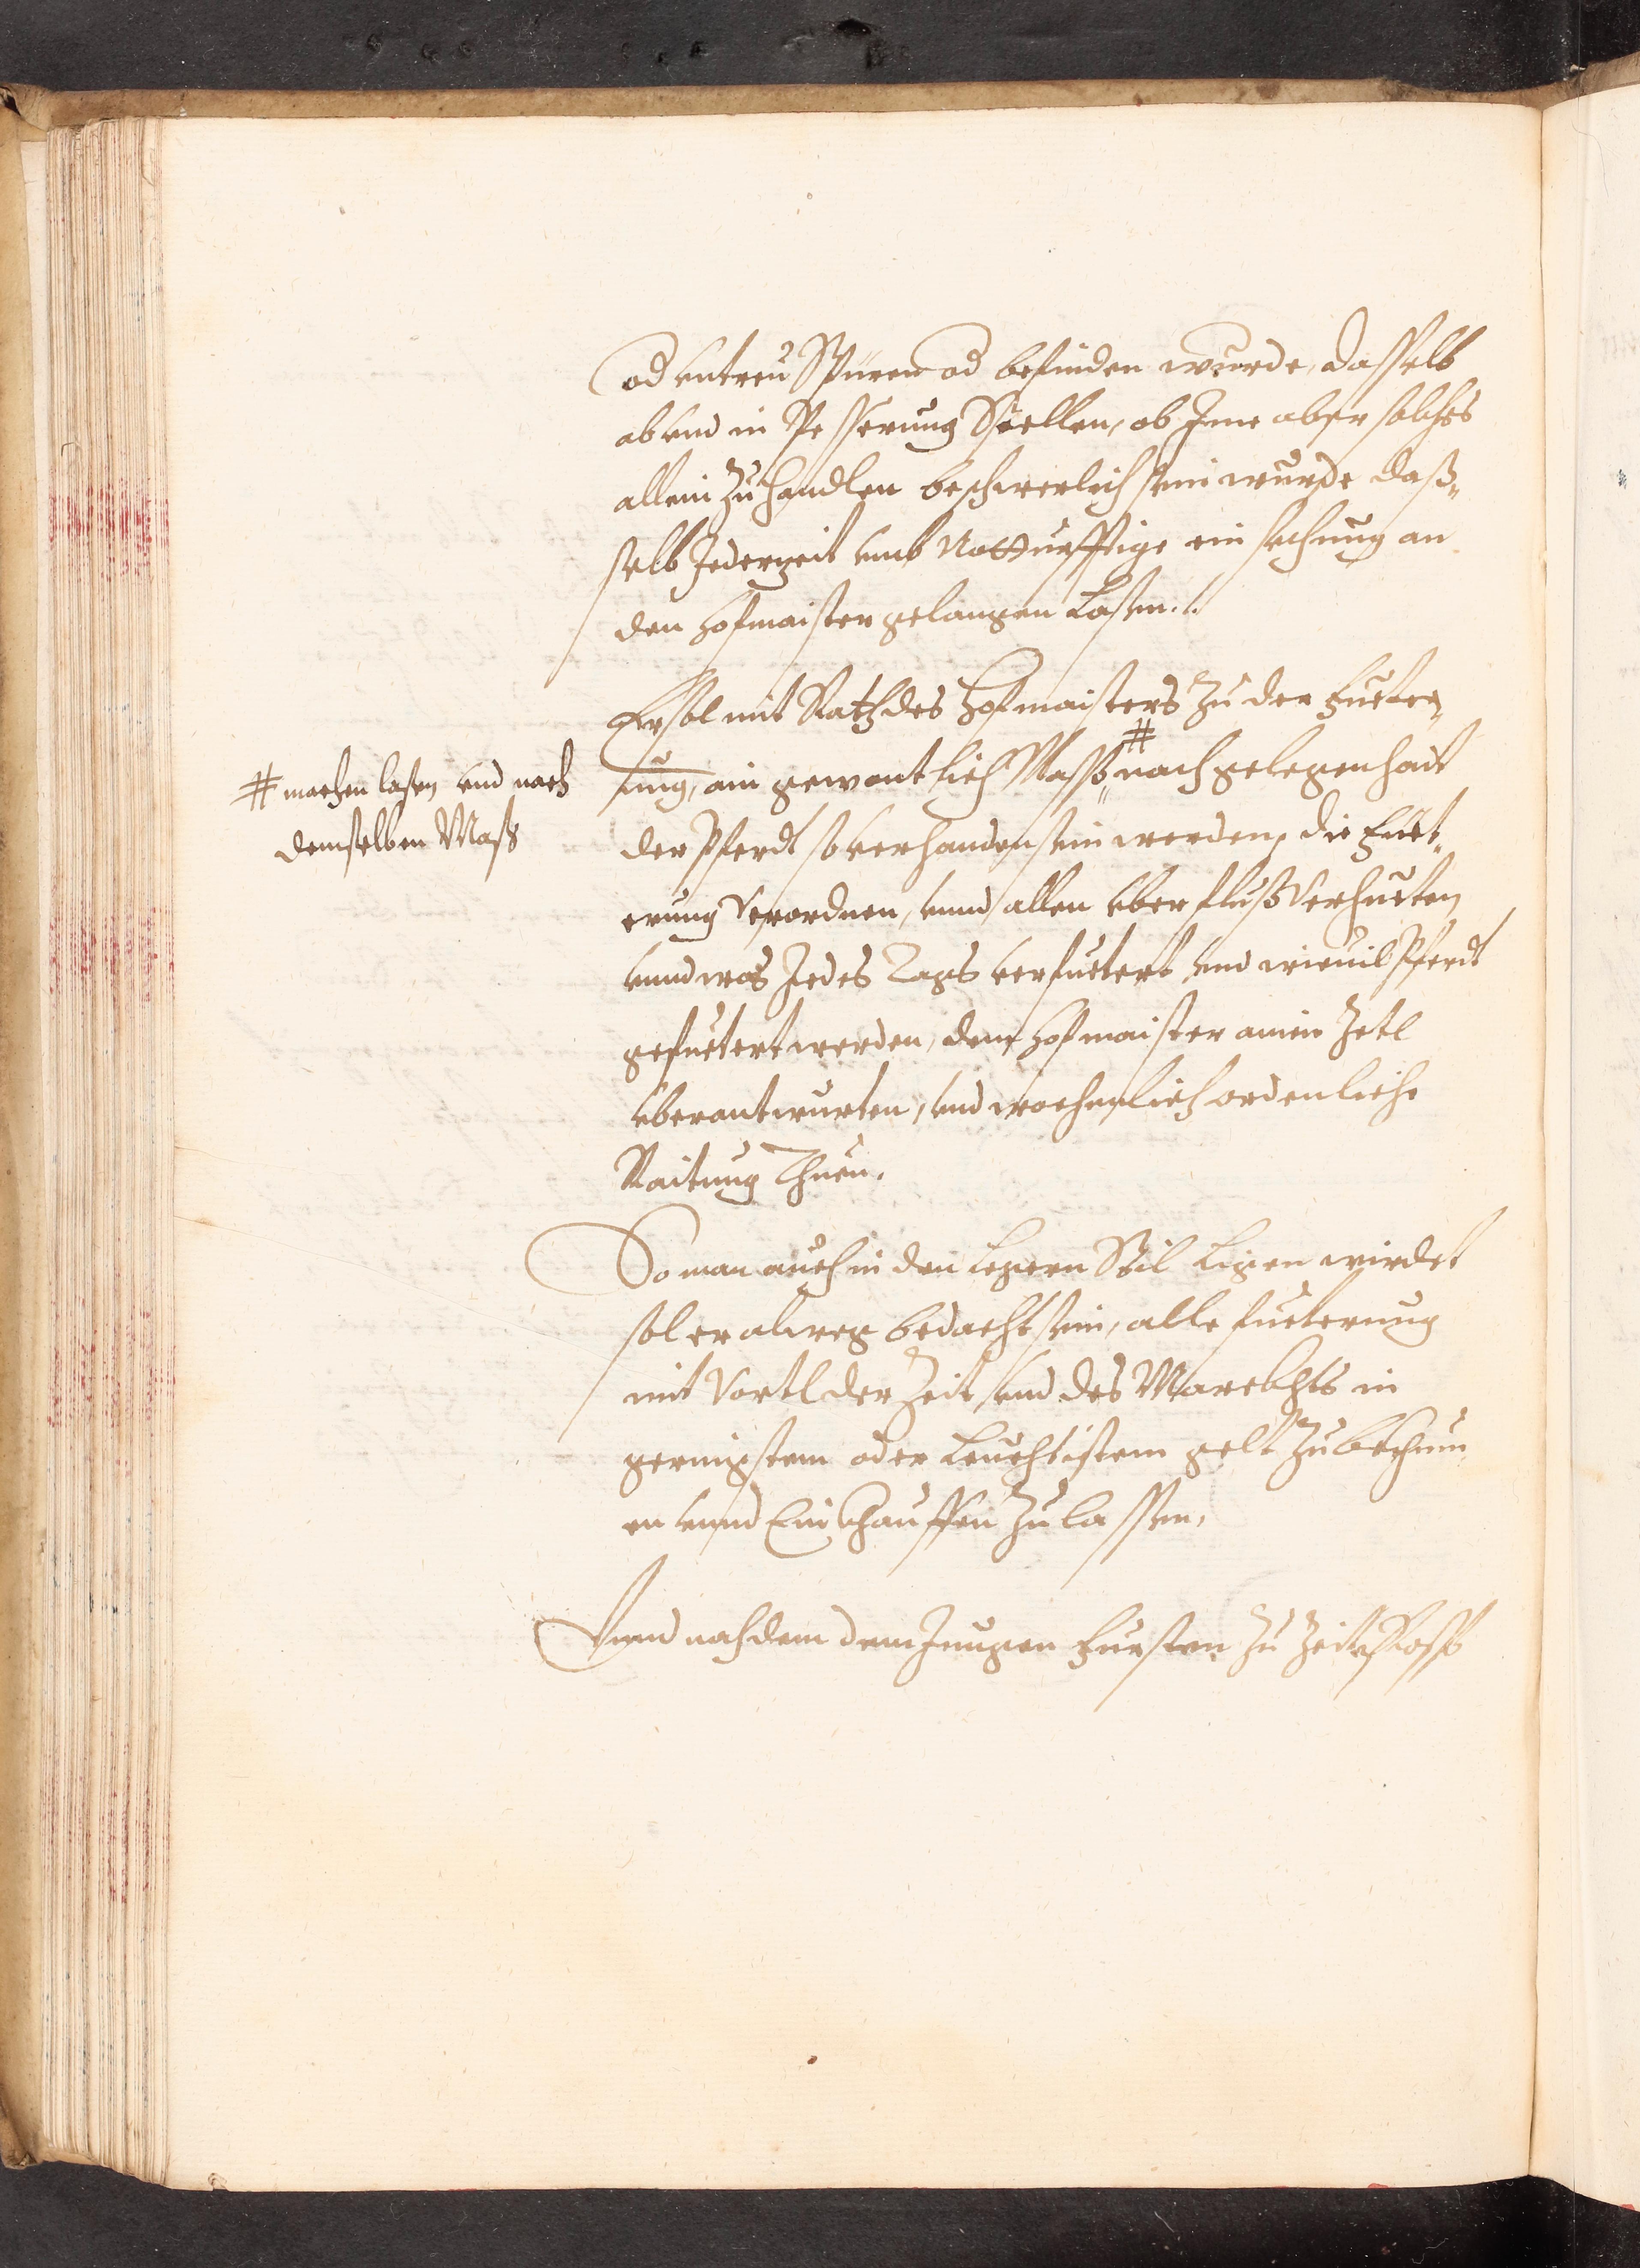 od untreu Spüren od befinden wurde, dasselb
ab und in Pesserung Stellen, ob Ime aber solches
allein zu handlen beschwerlich sein wurde daß„
selb Jederzeit umb Notturfftige ein sechung an
den hofmaister gelangen Lassen./.
Er sol mit Rath des Hofmaisters zu der Fueter„
ung, ain gewontlich Maß„ # nach gelegenhait
# machen lassen und nach
demselben Maß
der Pferdt so verhanden sein werden, die Fuet„
erung Verordnen, unnd allen überfluß Verhueten
unnd was Jedes Tags verfuetert und wievil Pferdt
gefuetert werden, dem hofmaister ainen Zetl
überantwurten, und wochenlich ordenliche
Raitung Thuen.
So man auch in den Legern Stil Ligen wirdet
sol er alweg bedacht sein, alle fueterung
mit Vortl der Zeit und des Marckhts in
geringstem oder Leuchtistem gelt zubekhum
en unnd Einkhauffen zu lassen,
Unnd nachdem dem Jungen Fursten zu Zeit Rosß